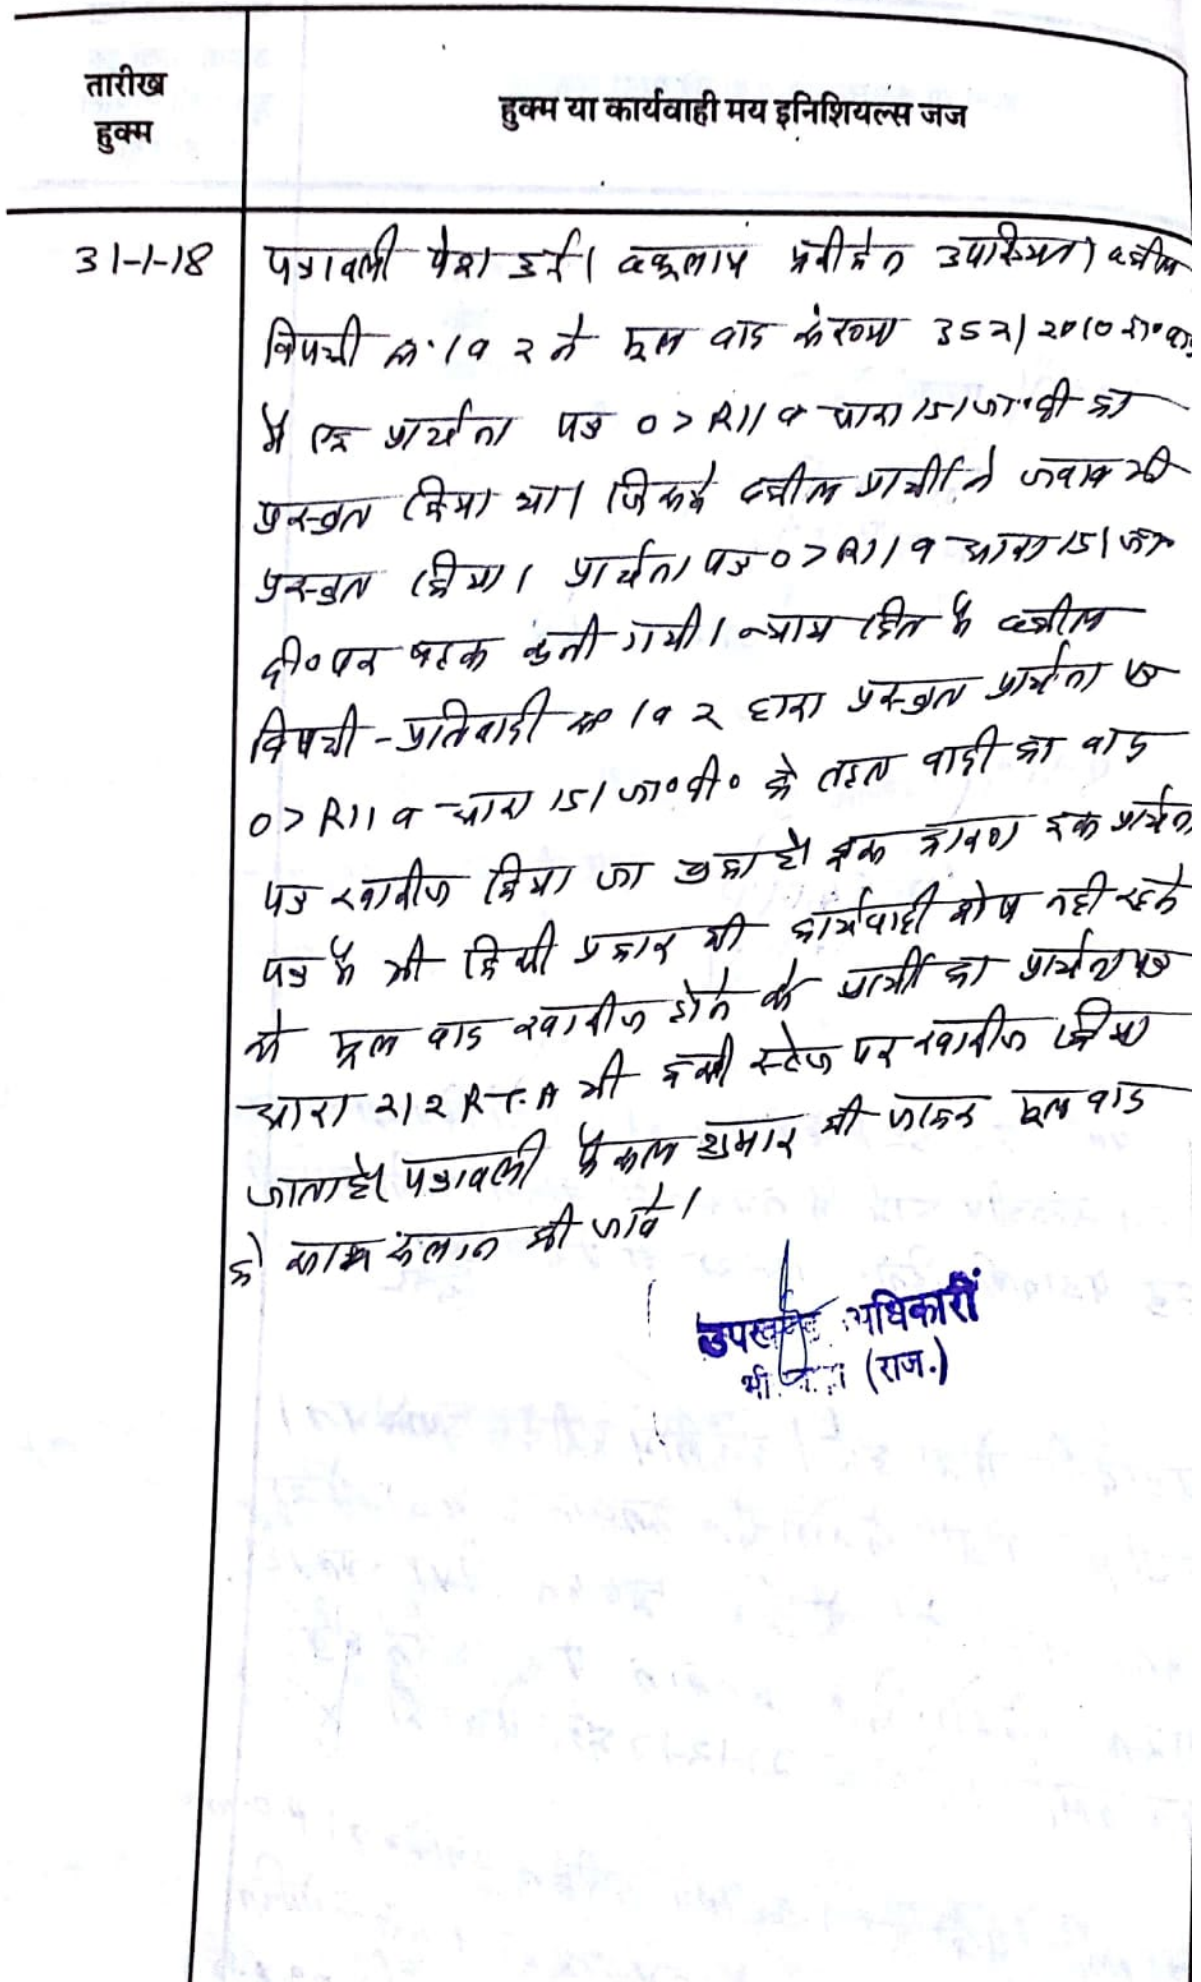 तारीख
हुक्म
हुक्म या कार्यवाही मय इनिशियल्स जज
31-1-18
पत्रावली पेश हुई। वकूलाय फरीकेन उपस्थित। वकील
विपक्षी सं. 1 व 2 ने मूल वाद संख्या 352/2010
में एक प्रार्थना पत्र 0 7 R11 व धारा 151 जा.दी का
प्रस्तुत किया था। जिसके वकील प्रार्थी ने जवाब भी
प्रस्तुत किया। प्रार्थना पत्र 0 7 R11 व धारा 151 जा०
दी० पर बहस सुनी गयी। न्याय हित में वकील
विपक्षी-प्रतिवादी सं० 1 व 2 द्वारा प्रस्तुत प्रार्थना पत्र
0 7 R11 व धारा 151 जा०दी० के तहत वादी का वाद
पत्र खारीज किया जा चुका है। इस कारण इस प्रार्थना
पत्र में भी किसी प्रकार की कार्यवाही शेष नही रहने
से मूल वाद खारीज होने से प्रार्थी का प्रार्थना पत्र
धारा 212 R.T.A भी इसी स्टेज पर खारीज किया
जाता है। पत्रावली फैसल शुमार की जाकर मूल वाद
के साथ संलग्न की जावे।
उपखण्ड अधिकारी
(राज.)